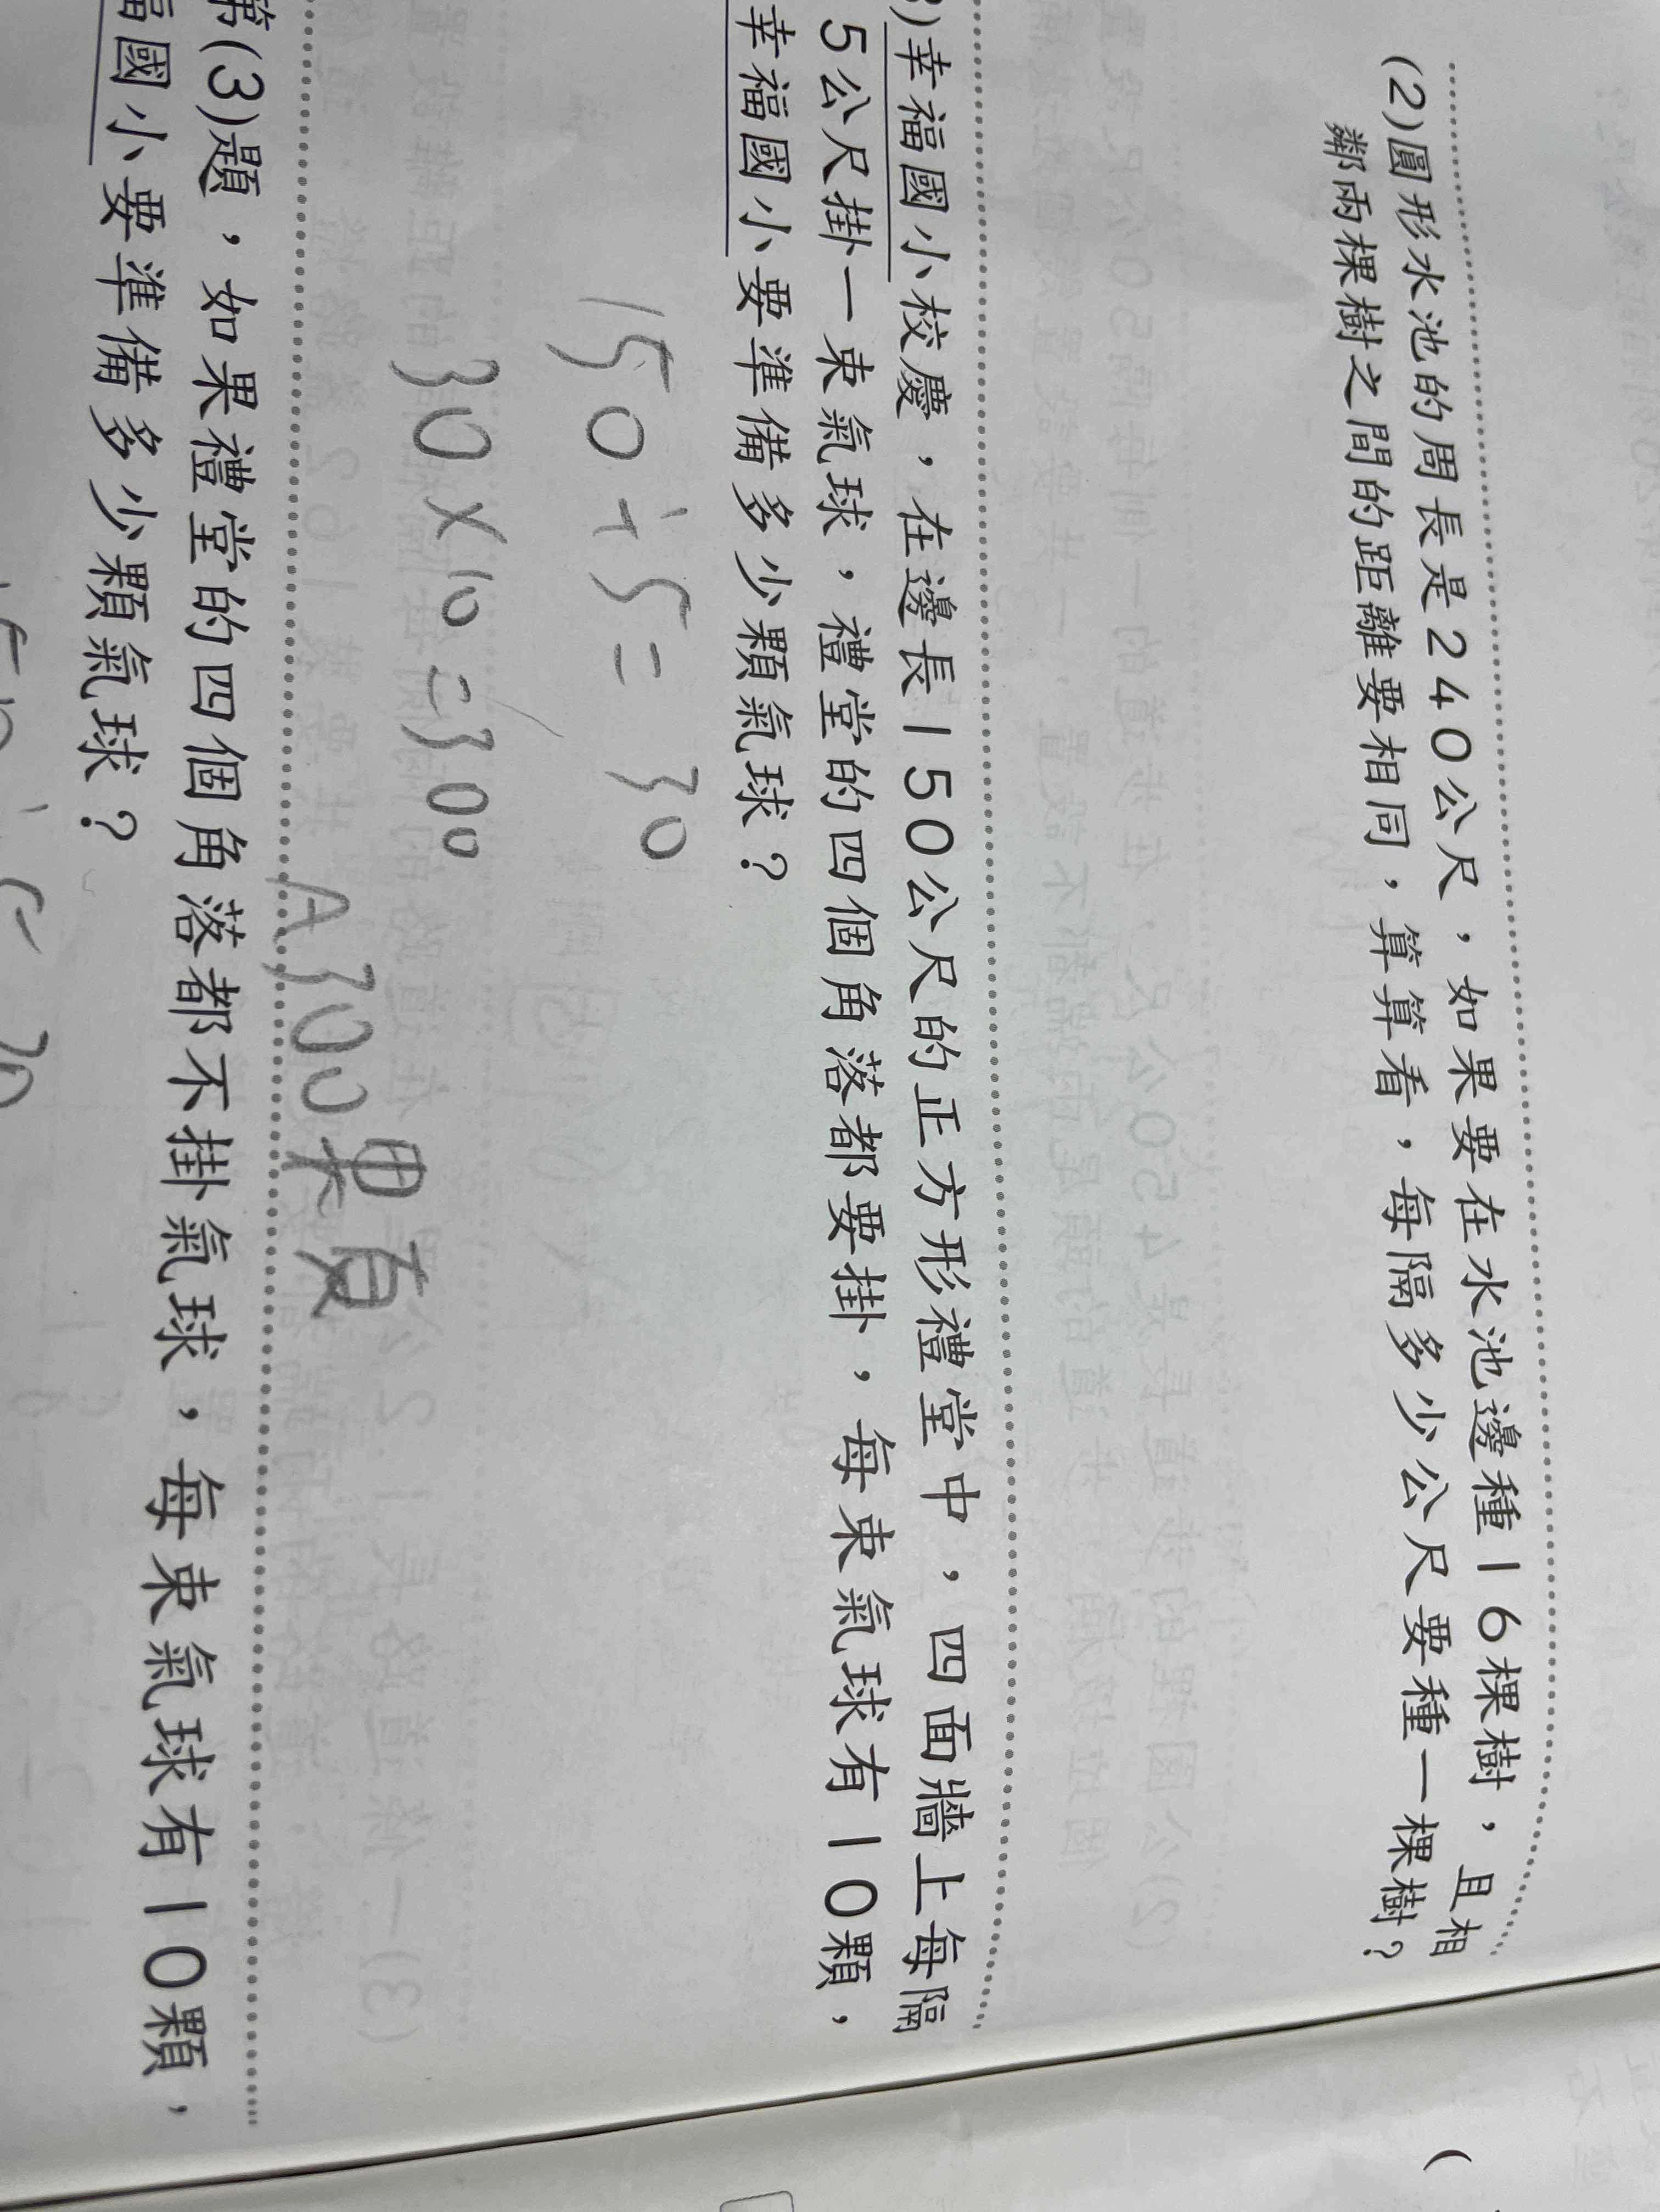 (2)圓形水池的周長是240公尺，如果要在水池邊種16棵樹，且相
鄰兩棵樹之間的距離要相同，算算看，每隔多少公尺要種一棵樹？
)幸福國小校慶，在邊長150公尺的正方形禮堂中，四面牆上每隔
5公尺掛一束氣球，禮堂的四個角落都要掛，每束氣球有10顆，
幸福國小要準備多少顆氣球？
150÷5=30
30×10=300
A300顆
第(3)題，如果禮堂的四個角落都不掛氣球，每束氣球有10顆，
福國小要準備多少顆氣球？